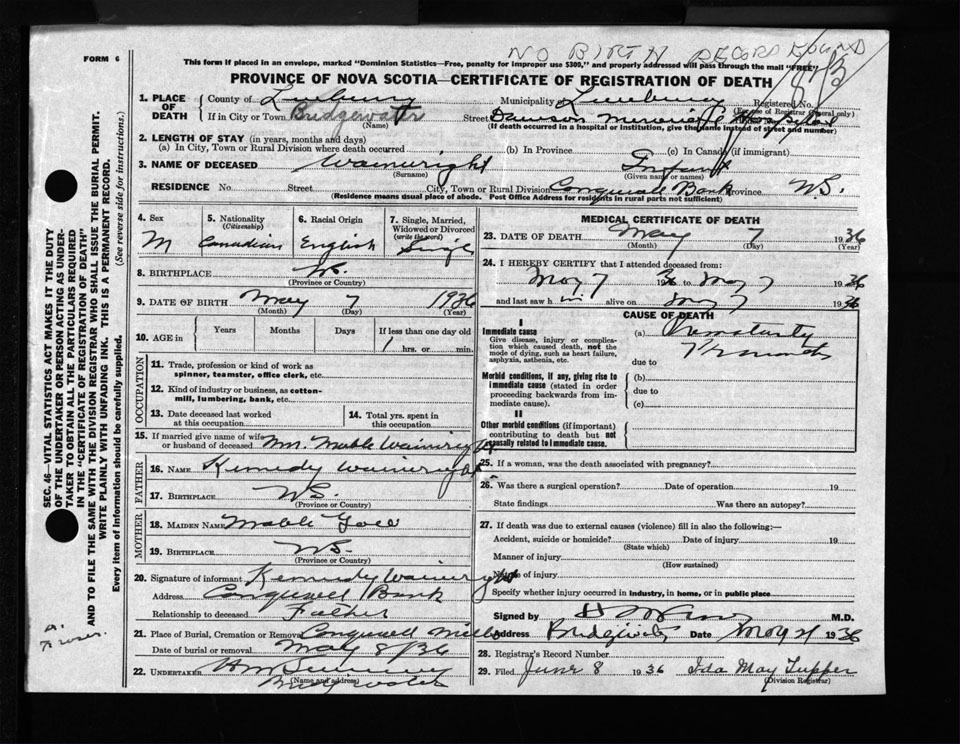 NO BIRTH RECORD FOUND
FORM 6
This form if placed in an envelope, marked "Dominion Statistics—Free, penalty for improper use $300," and properly addressed will pass through the mail "FREE"
PROVINCE OF NOVA SCOTIA—CERTIFICATE OF REGISTRATION OF DEATH
1. PLACE OF DEATH
County of Lunenburg Municipality Lunenburg Registered No.
(For use of Registrar General only)
If in City or Town Bridgewater Street Dawson Memorial Hospital
(Name) (If death occurred in a hospital or institution, give the name instead of street and number)
2. LENGTH OF STAY (in years, months and days)
(a) In City, Town or Rural Division where death occurred (b) In Province (c) In Canada (if immigrant)
3. NAME OF DECEASED Wainwright Infant
(Surname) (Given name or names)
RESIDENCE No. Street City, Town or Rural Division Conquerall Bank Province N.S.
(Residence means usual place of abode. Post Office Address for residents in rural parts not sufficient)
4. Sex
M
5. Nationality
(Citizenship)
Canadian
6. Racial Origin
English
7. Single, Married, Widowed or Divorced
(write the word)
Single
8. BIRTHPLACE N.S.
(Province or Country)
9. DATE OF BIRTH May 7 1936
(Month) (Day) (Year)
10. AGE in
Years Months Days If less than one day old
1 hrs. or min.
OCCUPATION
11. Trade, profession or kind of work as spinner, teamster, office clerk, etc.
12. Kind of industry or business, as cotton-mill, lumbering, bank, etc.
13. Date deceased last worked at this occupation
14. Total yrs. spent in this occupation
15. If married give name of wife or husband of deceased Mrs. Mable Wainwright
FATHER
16. NAME Kennedy Wainwright
17. BIRTHPLACE N.S.
(Province or Country)
MOTHER
18. MAIDEN NAME Mable
19. BIRTHPLACE N.S.
(Province or Country)
20. Signature of informant Kennedy Wainwright
Address Conquerell Bank
Relationship to deceased Father
21. Place of Burial, Cremation or Removal Conquerell Mills
Date of burial or removal May 8/36
22. UNDERTAKER
Bridgewater
(Name and address)
MEDICAL CERTIFICATE OF DEATH
23. DATE OF DEATH May 7 1936
(Month) (Day) (Year)
24. I HEREBY CERTIFY that I attended deceased from:
May 7 36 to May 7 1936
and last saw h im alive on May 7 1936
CAUSE OF DEATH
I
Immediate cause
Give disease, injury or complication which caused death, not the mode of dying, such as heart failure, asphyxia, asthenia, etc.
(a) Prematurity
months
due to
Morbid conditions, if any, giving rise to immediate cause (stated in order proceeding backwards from immediate cause).
(b)
due to
(c)
II
Other morbid conditions (if important) contributing to death but not causally related to immediate cause.
25. If a woman, was the death associated with pregnancy?
26. Was there a surgical operation? Date of operation 19
State findings Was there an autopsy?
27. If death was due to external causes (violence) fill in also the following:—
Accident, suicide or homicide? Date of injury 19
(State which)
Manner of injury
(How sustained)
Nature of injury
Specify whether injury occurred in industry, in home, or in public place
Signed by M.D.
Address Bridgewater Date May 21 1936
28. Registrar's Record Number
29. Filed June 8 1936 Ida May Tupper
(Division Registrar)
SEC. 46—VITAL STATISTICS ACT MAKES IT THE DUTY OF THE UNDERTAKER OR PERSON ACTING AS UNDERTAKER TO OBTAIN ALL THE PARTICULARS REQUIRED IN THE "CERTIFICATE OF REGISTRATION OF DEATH" AND TO FILE THE SAME WITH THE DIVISION REGISTRAR WHO SHALL ISSUE THE BURIAL PERMIT.
WRITE PLAINLY WITH UNFADING INK. THIS IS A PERMANENT RECORD.
Every item of information should be carefully supplied. (See reverse side for instructions.)